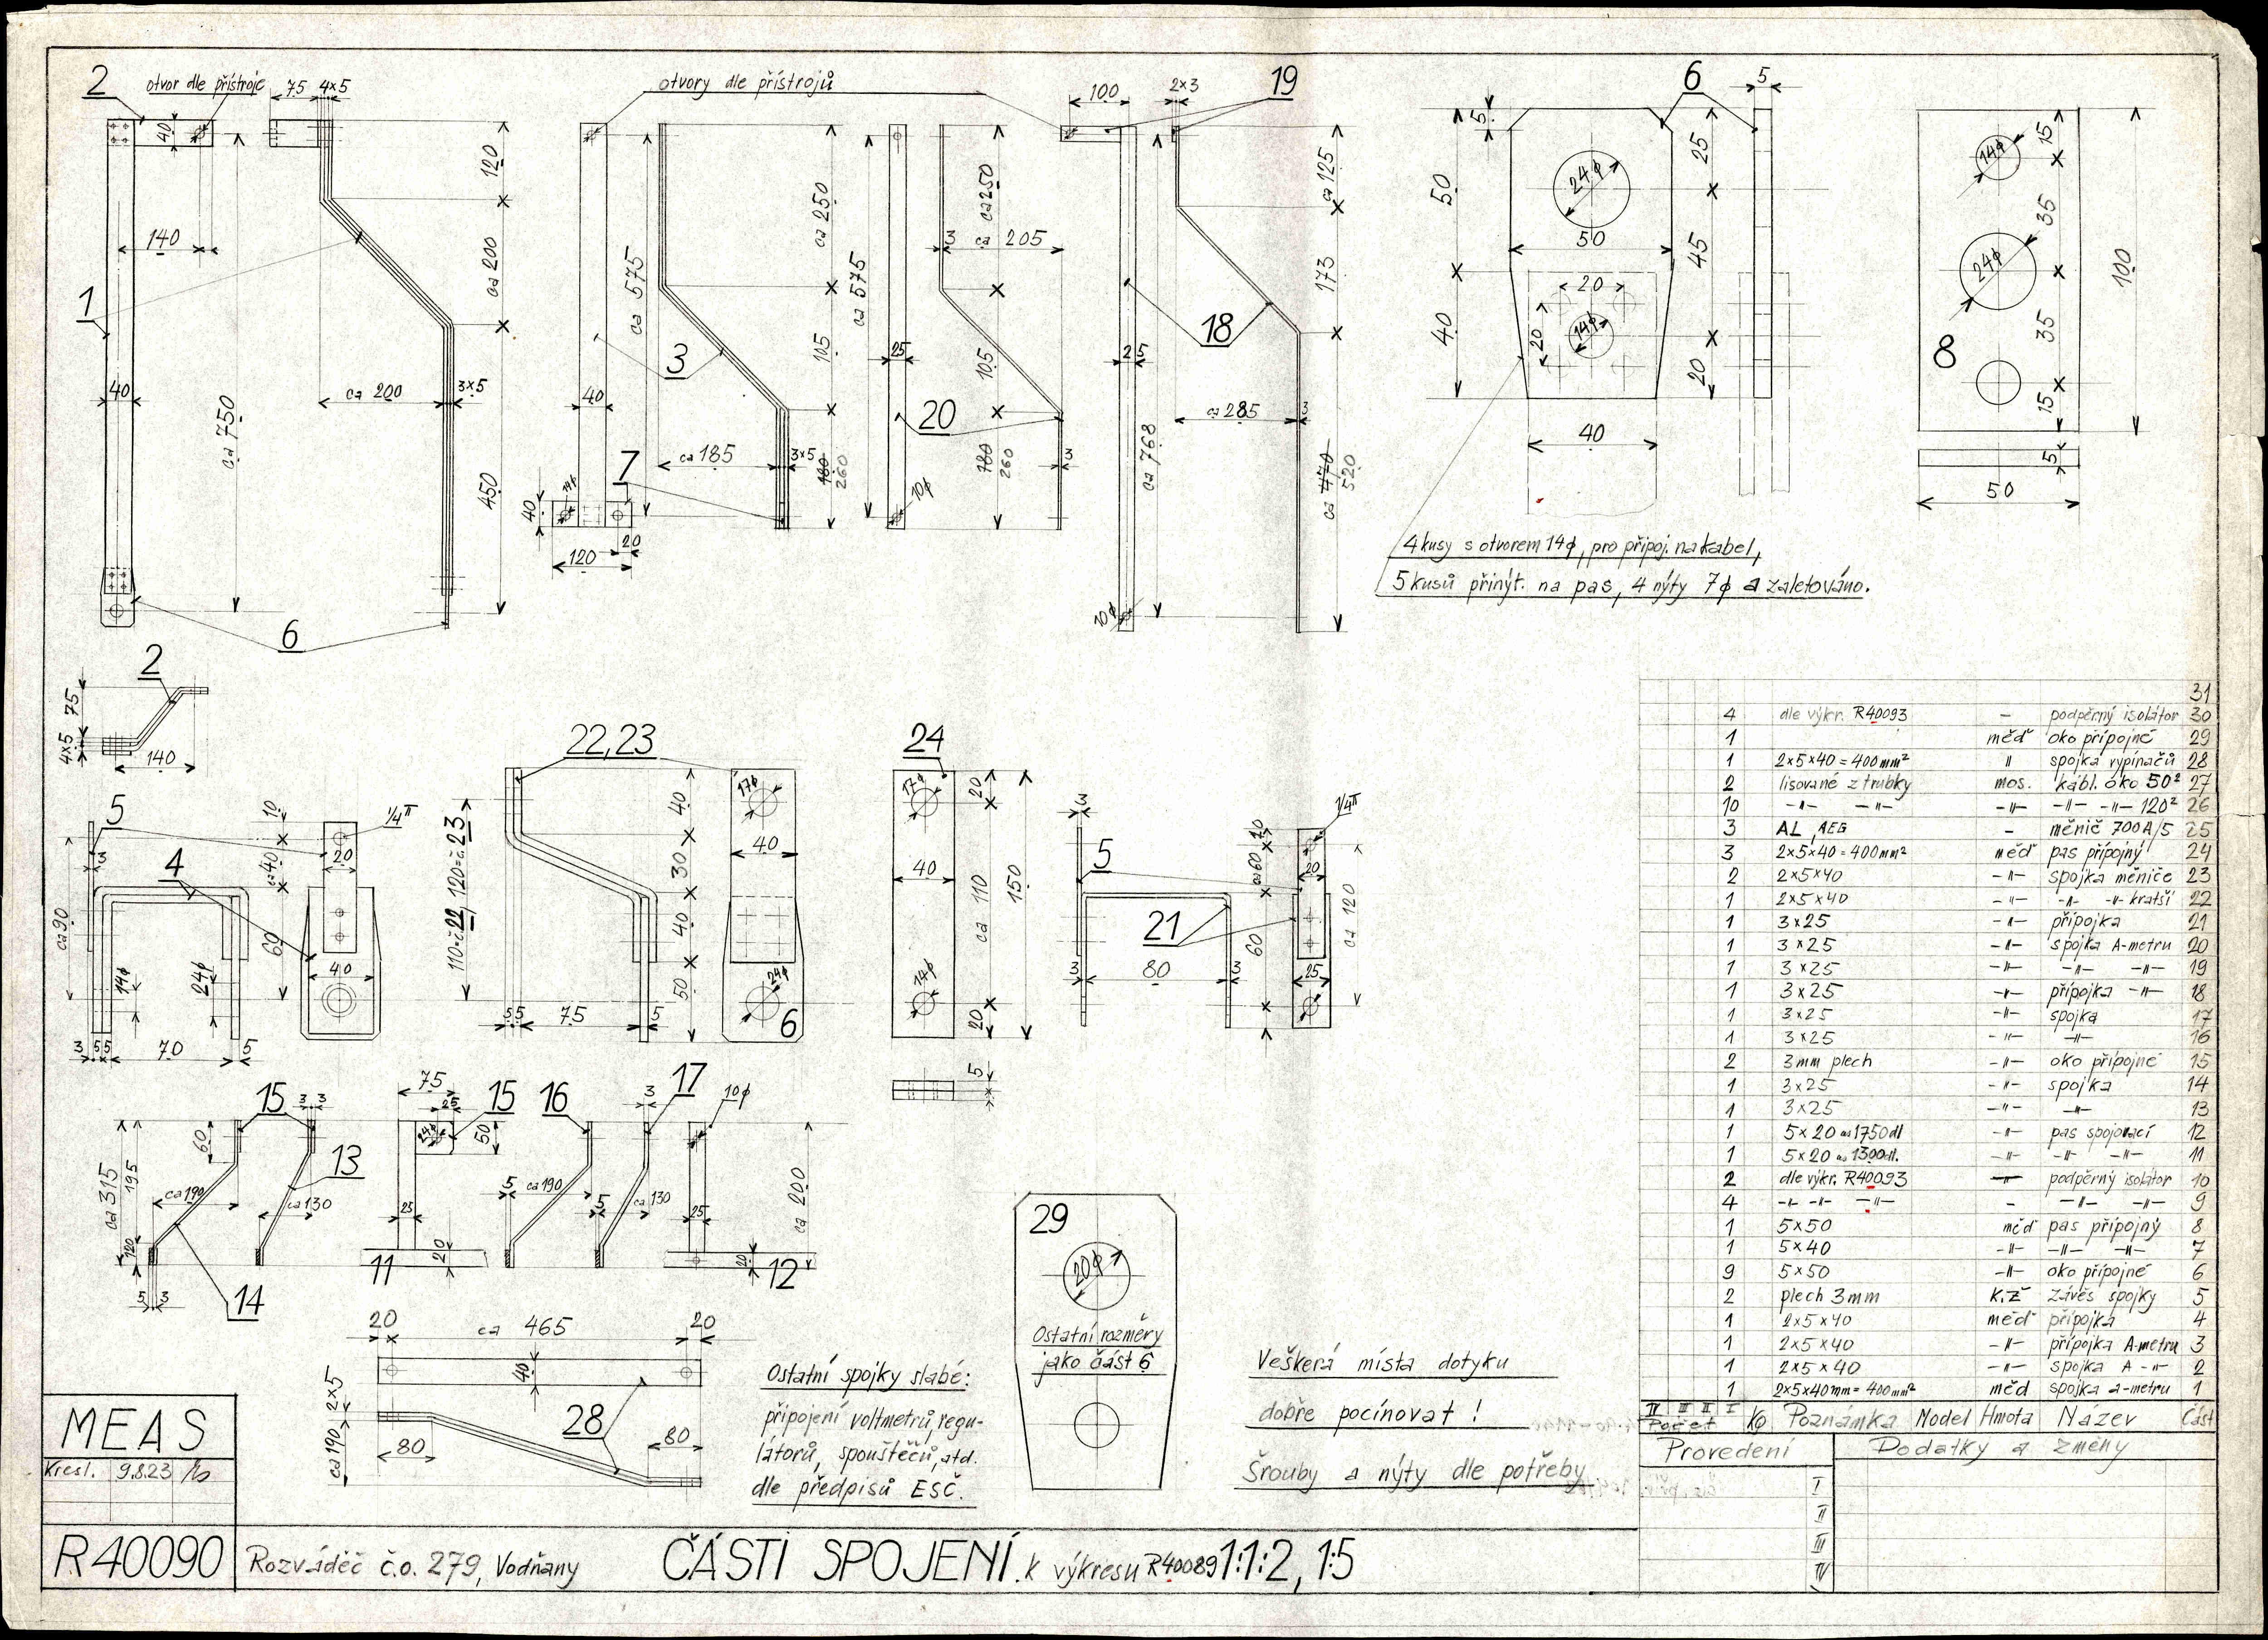 2 otvor dle přístroje 75 4×5
40
120
140
ca 200
1
40
ca 200
3×5
ca 750
450
6
otvory dle přístrojů
ca 575
ca 250
3
105
40
7
ca 185
3×5
180
260
14φ
40
20
120
ca 575
ca 250
3 ca 205
25
105
20
180
260
3
10φ
100 2×3 19
ca 125
173
18
25
ca 285
3
ca 768
ca 470
520
10φ
6 5
5
50
24φ
25
50
45
20
40
20
14φ
20
40
4 kusy s otvorem 14φ, pro připoj. na kabel,
5 kusů přinýt. na pas, 4 nýty 7φ a zaletováno.
14φ
15
35
24φ
100
35
8
15
5
50
2
75
4×5
140
5
10
1/4"
3
20
ca 40
4
ca 90
60
40
14φ
24φ
3 5 5 70 5
22,23
17φ
40
40
30
110=č.22, 120=č.23
40
50
24φ
5 5 75 5
6
24
17φ
20
40
ca 110
150
14φ
20
5
3
5
10
1/4"
ca 60
20
ca 120
21
60
3 80 3
25
15 3 3
60
13
ca 315
195
ca 190
ca 130
120
5 3
14
75
25
15
24φ
50
25
11
20
16
3 17
5 ca 190
5 ca 130
10φ
25
ca 200
20
12
20 ca 465 20
40
2×5
ca 190
80
28
80
29
20φ
Ostatní rozměry
jako část 6
Ostatní spojky slabé:
připojení voltmetrů, regu-
látorů, spouštěčů, atd.
dle předpisů ESČ.
Veškerá místa dotyku
dobře pocínovat !
Šrouby a nýty dle potřeby
31
4 dle výkr. R40093 – podpěrný isolátor 30
1 měď oko přípojné 29
1 2×5×40=400mm² " spojka vypínačů 28
2 lisované z trubky mos. kábl. oko 50² 27
10 -"- -"- -"- -"- -"- 120² 26
3 AL, AEG – měnič 700A/5 25
3 2×5×40=400mm² měď pas přípojný 24
2 2×5×40 -"- spojka měniče 23
1 2×5×40 -"- -"- -"- kratší 22
1 3×25 -"- přípojka 21
1 3×25 -"- spojka A-metru 20
1 3×25 -"- -"- -"- 19
1 3×25 -"- přípojka -"- 18
1 3×25 -"- spojka 17
1 3×25 -"- -"- 16
2 3mm plech -"- oko přípojné 15
1 3×25 -"- spojka 14
1 3×25 -"- -"- 13
1 5×20 1750 dl -"- pas spojovací 12
1 5×20 1300 dl. -"- -"- -"- 11
2 dle výkr. R40093 – podpěrný isolátor 10
4 -"- -"- -"- - -"- -"- 9
1 5×50 měď pas přípojný 8
1 5×40 -"- -"- -"- 7
9 5×50 -"- oko přípojné 6
2 plech 3mm K.Ž závěs spojky 5
1 2×5×40 měď přípojka 4
1 2×5×40 -"- přípojka A-metru 3
1 2×5×40 -"- spojka A -"- 2
1 2×5×40mm=400mm² měď spojka a-metru 1
IV III II I
Počet Kg Poznámka Model Hmota Název Část
Provedení Dodatky a změny
I
II
III
IV
MEAS
Kresl. 9.8.23
R40090 Rozváděč č.o. 279, Vodňany ČÁSTI SPOJENÍ. k výkresu R40089 1:1:2, 1:5